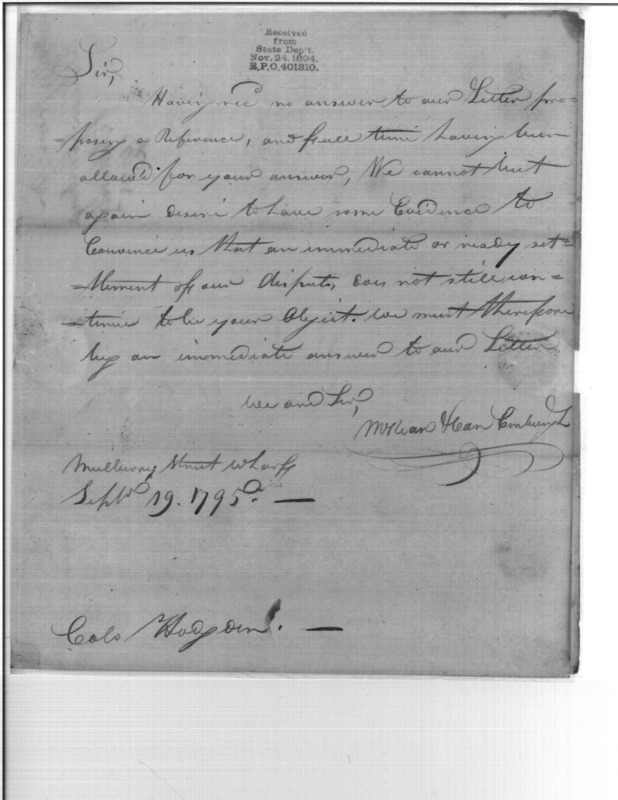 Received
from
State Dep't.
Nov. 24, 1894.
R.P.O. 401310.
Sir,
Having recd no answer to our Letter pro=
=posing a Reference, and full time having been
allow'd for your answer, We cannot but
again desire to have some Evidence to
Convince us that an immediate or ready set=
=tlement of our dispute, does not still con=
=tinue to be your Object. We must therefore
beg an immediate answer to our Letter.
We are Sir,
Mulberry Street Wharf
Septr 19. 1795. —
Colo Hodgdon. —